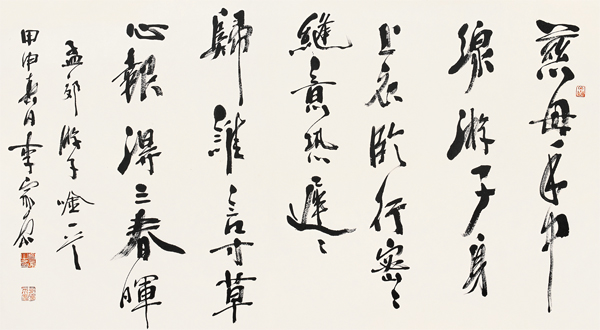 慈母手中
線游子身
上衣臨行密〻
縫意恐遲〻
歸誰言寸草
心報得三春暉
孟郊游子吟一首
甲申春月李家